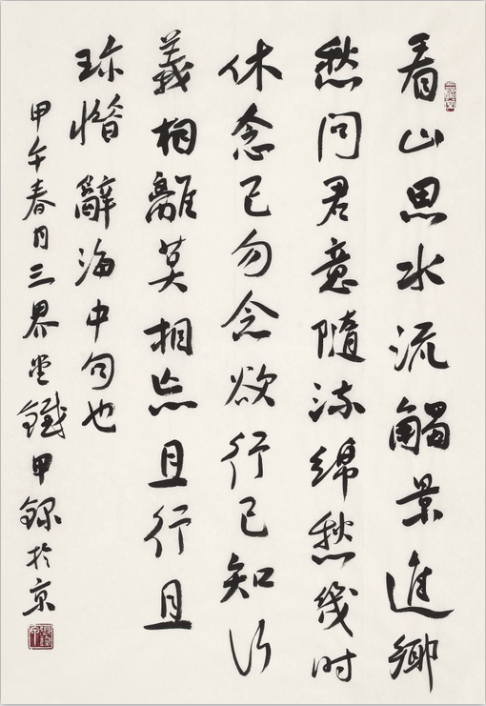 看山思水流觸景進鄉
愁問君意隨流綿愁幾时
休念己勿念欲行已知行
義相離莫相忘且行且
珍惜辭海中句也
甲午春月三界堂鐵甲錄於京